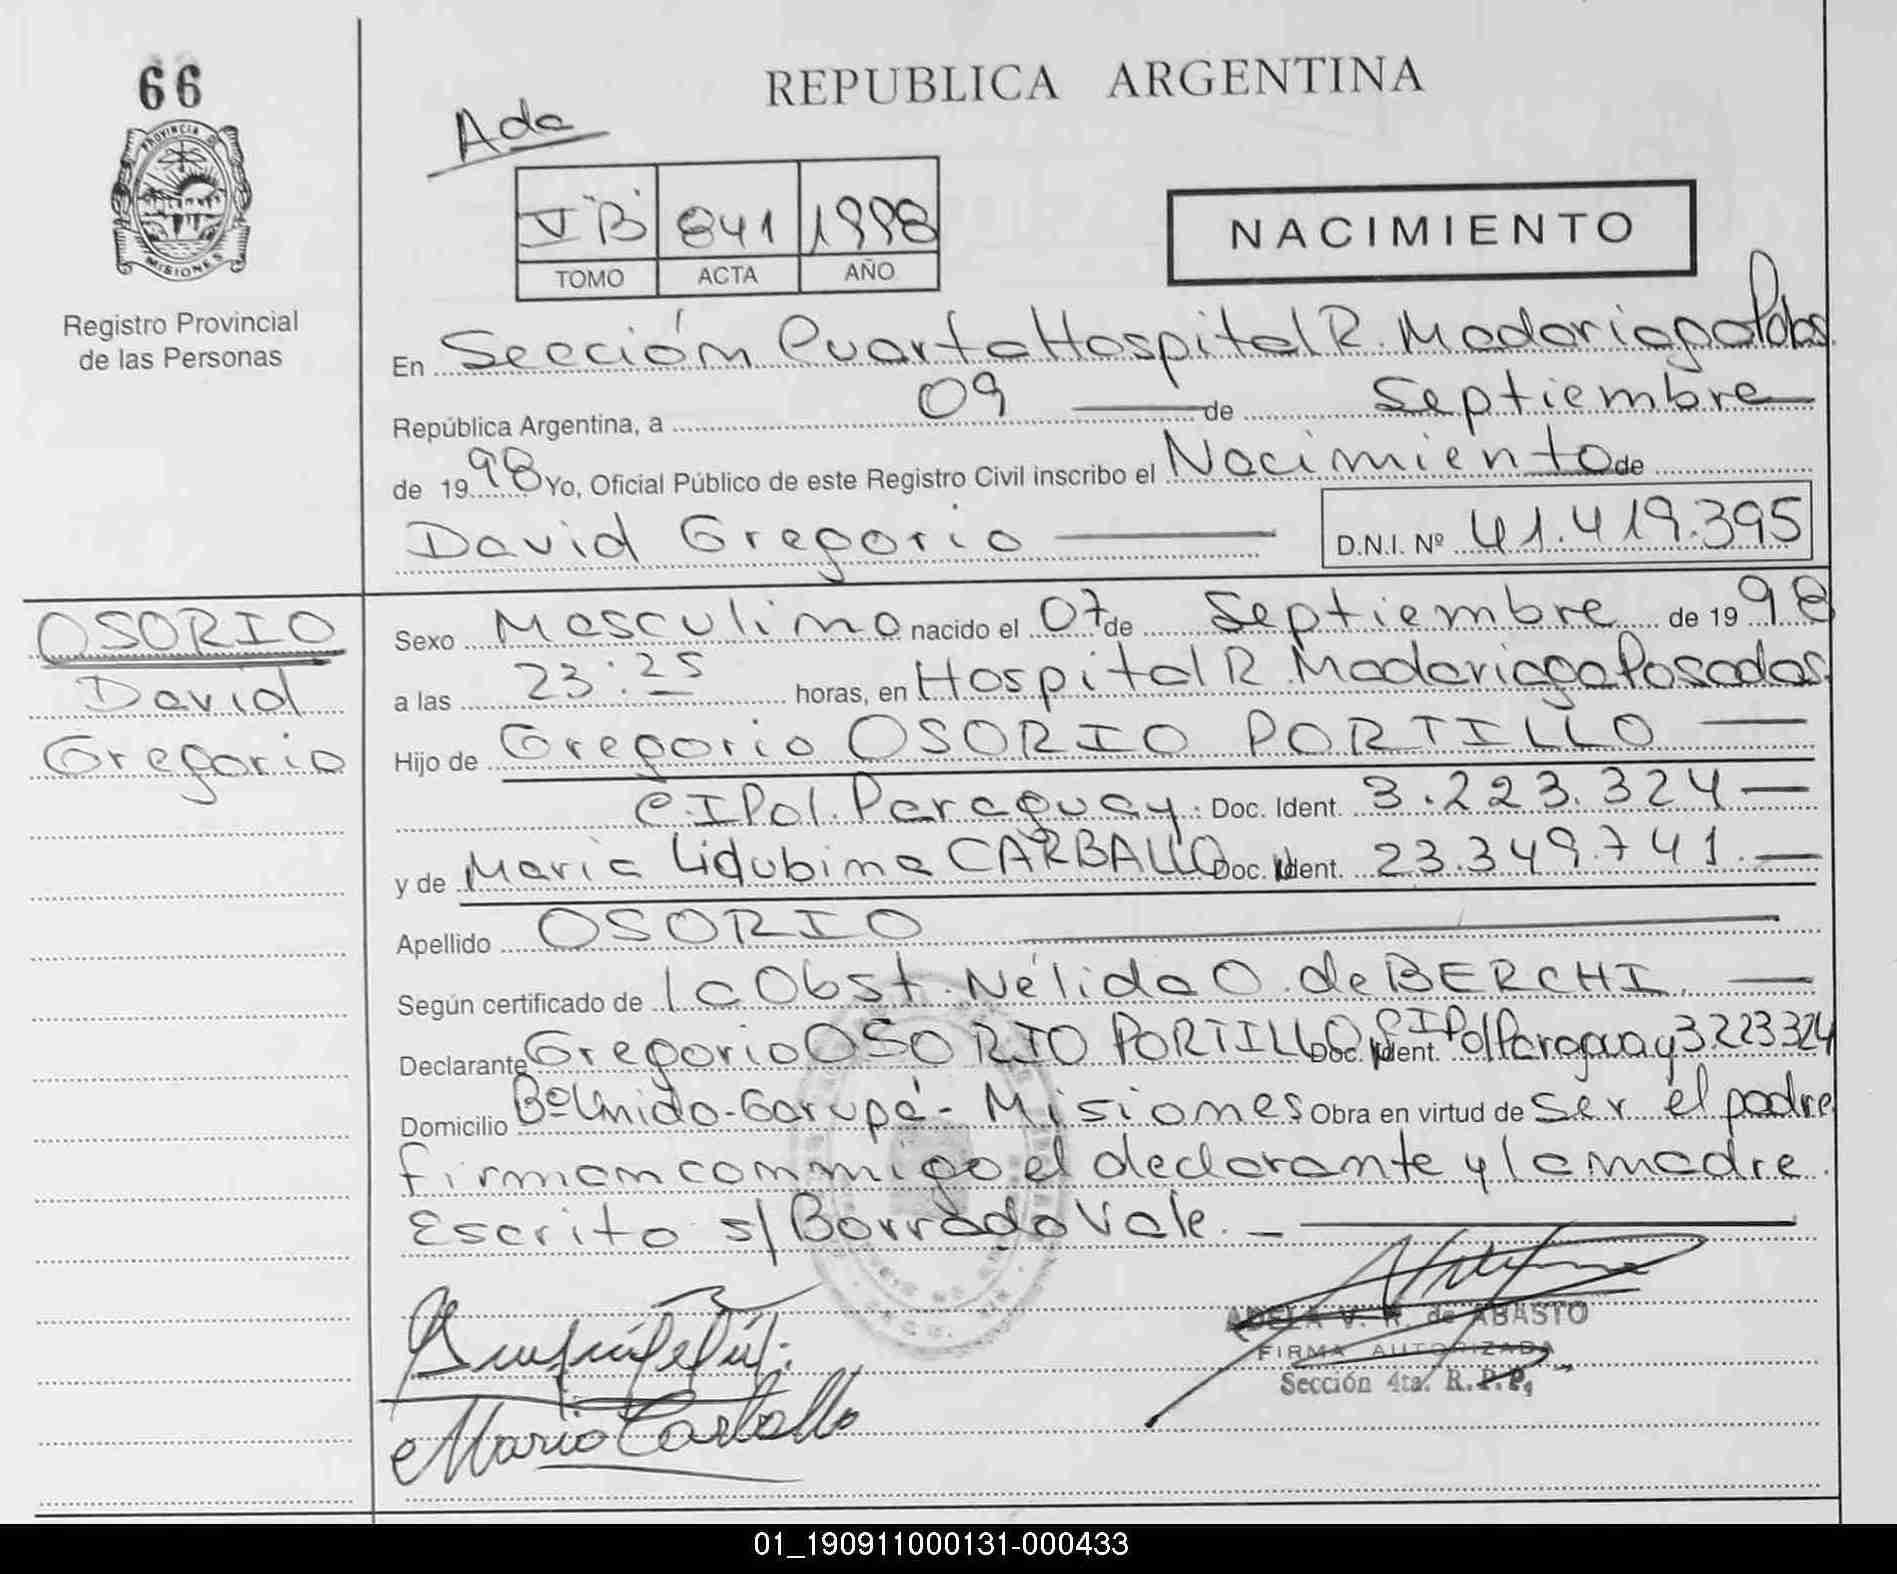 66
REPUBLICA ARGENTINA
Ada
PROVINCIA D
MISIONES
V "B" 841 1998
TOMO ACTA AÑO
NACIMIENTO
Registro Provincial
de las Personas
En Sección Cuarta Hospital R. Madariaga Pdas.
República Argentina, a 09 de Septiembre
de 1998 Yo, Oficial Público de este Registro Civil inscribo el Nacimiento de
David Gregorio D.N.I. Nº 41.419.395
OSORIO
David
Gregorio
Sexo Masculino nacido el 07 de Septiembre de 1998
a las 23:25 horas, en Hospital R. Madariaga Posadas.
Hijo de Gregorio OSORIO PORTILLO
C.I Pol. Paraguay. Doc. Ident. 3.223.324
y de Maria Lidubina CARBALLO Doc. Ident. 23.349.741.
Apellido OSORIO
Según certificado de la Obst. Nélida O. de BERCHI.
Declarante Gregorio OSORIO PORTILLO Doc. Ident. C I Pol Paraguay 3223324
Domicilio Bº Unido-Garupá-Misiones Obra en virtud de ser el padre
firman conmigo el declarante y la madre.
Escrito s/ Borrado Vale.
ADELA V. R. de ABASTO
FIRMA AUTORIZADA
Sección 4ta. R.P.P.
Maria Carballo
01_190911000131-000433